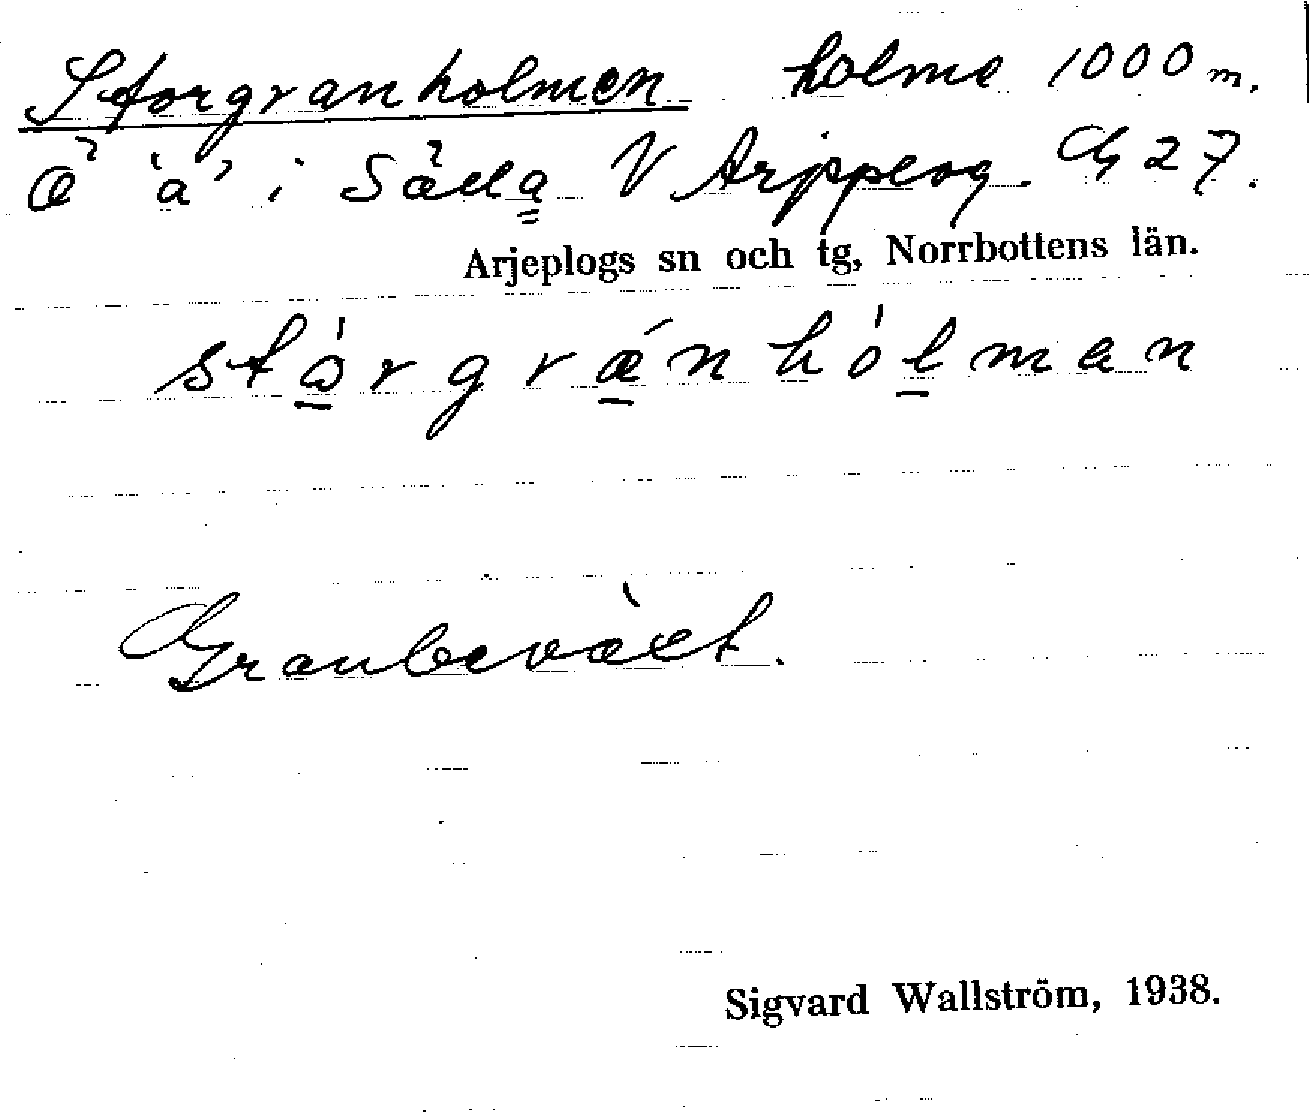 Storgranholmen holme 1000 m.
i V Arjeplog G 27.
Arjeplogs sn och tg, Norrbottens län.
stòrgránhólman
Granbeväxt.
Sigvard Wallström, 1938.